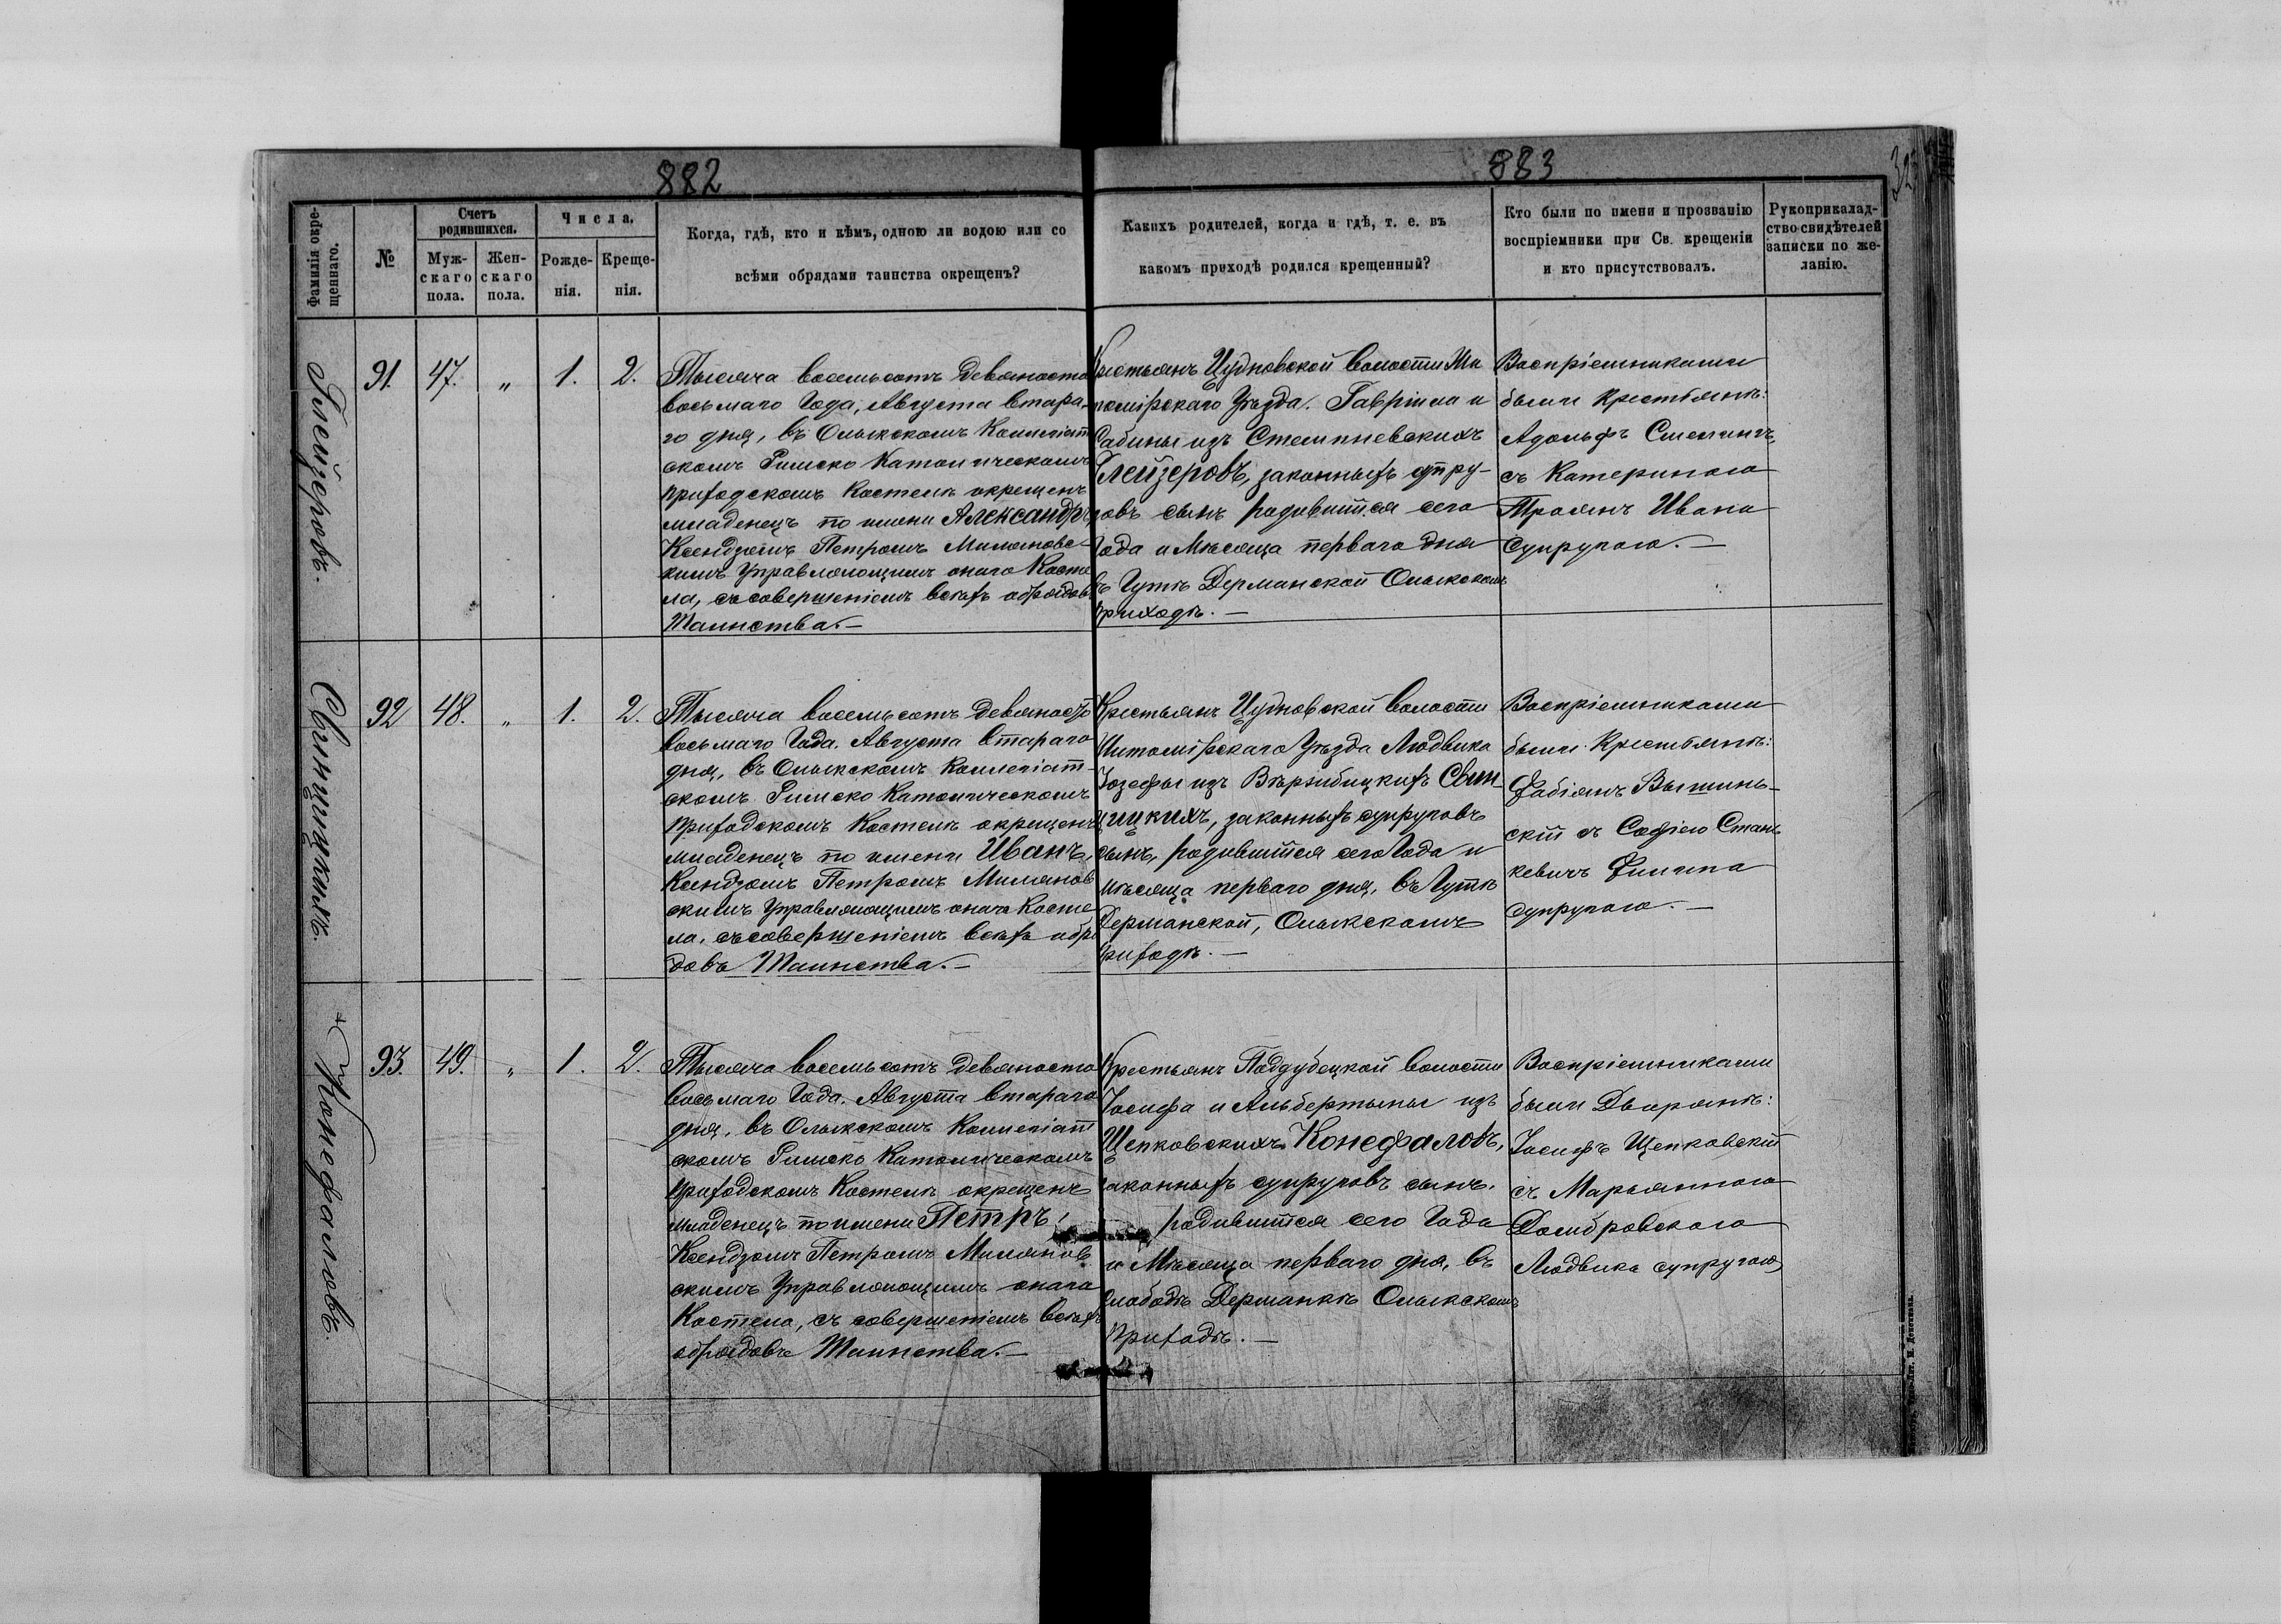 882
883
Фамилія окре-
щеннаго.
№
Счетъ
родившихся.
Муж-
скаго
пола.
Жен-
скаго
пола.
Числа.
Рожде-
нія.
Креще-
нія.
Когда, гдѣ, кто и кѣмъ, одною ли водою или со
всѣми обрядами таинства окрещенъ?
Какихъ родителей, когда и гдѣ, т. е. въ
какомъ приходѣ родился крещенный?
Кто были по имени и прозванію
воспріемники при Св. крещеніи
и кто присутствовалъ.
Рукоприкалад-
ство свидѣтелей
записки по же-
ланію.
Глейзеровъ.
91. 47. „ 1. 2.
Тысяча восемьсотъ девяноста
восьмаго Года, Августа втара-
го дня, въ Олыкскомъ Коллегіат
скомъ Римско Католическомъ
приходскомъ Костелѣ окрещенъ
младенецъ по имени Александръ,
Ксендзомъ Петромъ Миляновс-
кимъ Управляющимъ онаго Косте
ла, съ совершеніемъ всѣхъ обрядовъ
Таинства.—
Крестьянъ Цудновской волости Жи
томірскаго Уѣзда. Гавріила и
Сабины изъ Стемпневскихъ
Глейзеровъ, законныхъ супру-
говъ сынъ родившійся сего
Года и Мѣсяца перваго дня
въ Гутѣ Дерманской Олыкскомъ
приходѣ.—
Воспріемниками
были Крестьянѣ:
Адольфъ
съ Катериною
Троянъ Ивана
супругою.—
Свинцицкихъ.
92 48. „ 1. 2.
Тысяча восемьсотъ девяносто
восьмаго Года. Августа втараго
дня, въ Олыкскомъ Коллегіат-
скомъ Римско Католическомъ
приходскомъ Костелѣ окрещенъ
младенецъ по имени Иванъ,
Ксендзомъ Петромъ Миляновс
кимъ Управляющимъ онаго Косте
ла, съ совершеніемъ всѣхъ обря
довъ Таинства.—
Крестьянъ Цудновской волости
Житомірскаго Уѣзда Людвика
Іозефы изъ Вѣржбицкихъ Свин-
цицкихъ, законныхъ супруговъ
сынъ, родившійся сего Года и
мѣсяца перваго дня, въ Гутѣ
Дерманской, Олыкскомъ
приходѣ.—
Воспріемниками
были Крестьянѣ:
Фабіянъ Вышинь-
скій съ Софіею Стань
кевичъ Филипа
супругою.—
Конефаловъ.
93. 49. „ 1. 2.
Тысяча восемьсотъ девяноста
восьмаго Года. Августа втараго
дня, въ Олыкскомъ Коллегіат
скомъ Римско Католическомъ
приходскомъ Костелѣ окрещенъ
младенецъ по имени Петръ,
Ксендзомъ Петромъ Милянов
скимъ Управляющимъ онаго
Костела, съ совершеніемъ всѣхъ
обрядовъ Таинства.—
Крестьянъ Поддубецкой волости
Іосифа и Альбертыны изъ
Щепковскихъ Конефаловъ,
законныхъ супруговъ сынъ,
родившійся сего Года
и Мѣсяца перваго дня, въ
Слободѣ Дерманкѣ Олыкскомъ
приходѣ.—
Воспріемниками
были Дворянѣ:
Іосифъ Щепковскій
съ Марьянною
Домбровскою
Людвика супругою